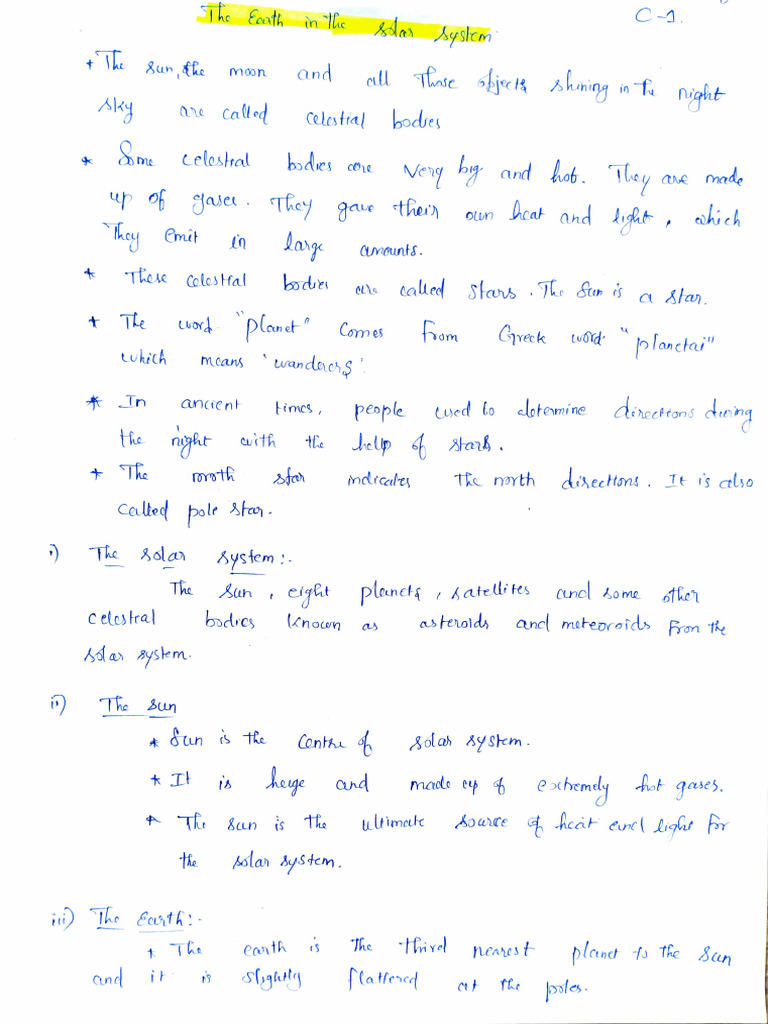 The Earth in the solar system
C-1.
* The sun, the moon and all those objects shining in the night
sky are called celestial bodies
* Some celestral bodies are very big and hot. They are made
up of gases. They gave their own heat and light, which
They emit in large amounts.
* These celestral bodies are called stars. The Sun is a star.
* The word "planet" comes from Greek word "planetai"
which means 'wanderers'.
* In ancient times, people used to determine directions during
the night with the help of stars.
* The north star indicates the north directions. It is also
called pole star.
i) The solar system:-
The sun, eight planets, satellites and some other
celestral bodies known as asteroids and meteoroids from the
solar system.
ii) The sun
* Sun is the centre of solar system.
* It is huge and made up of extremely hot gases.
* The sun is the ultimate source of heat and light for
the solar system.
iii) The Earth:-
* The earth is the third nearest planet to the sun
and it is slightly flattered at the poles.